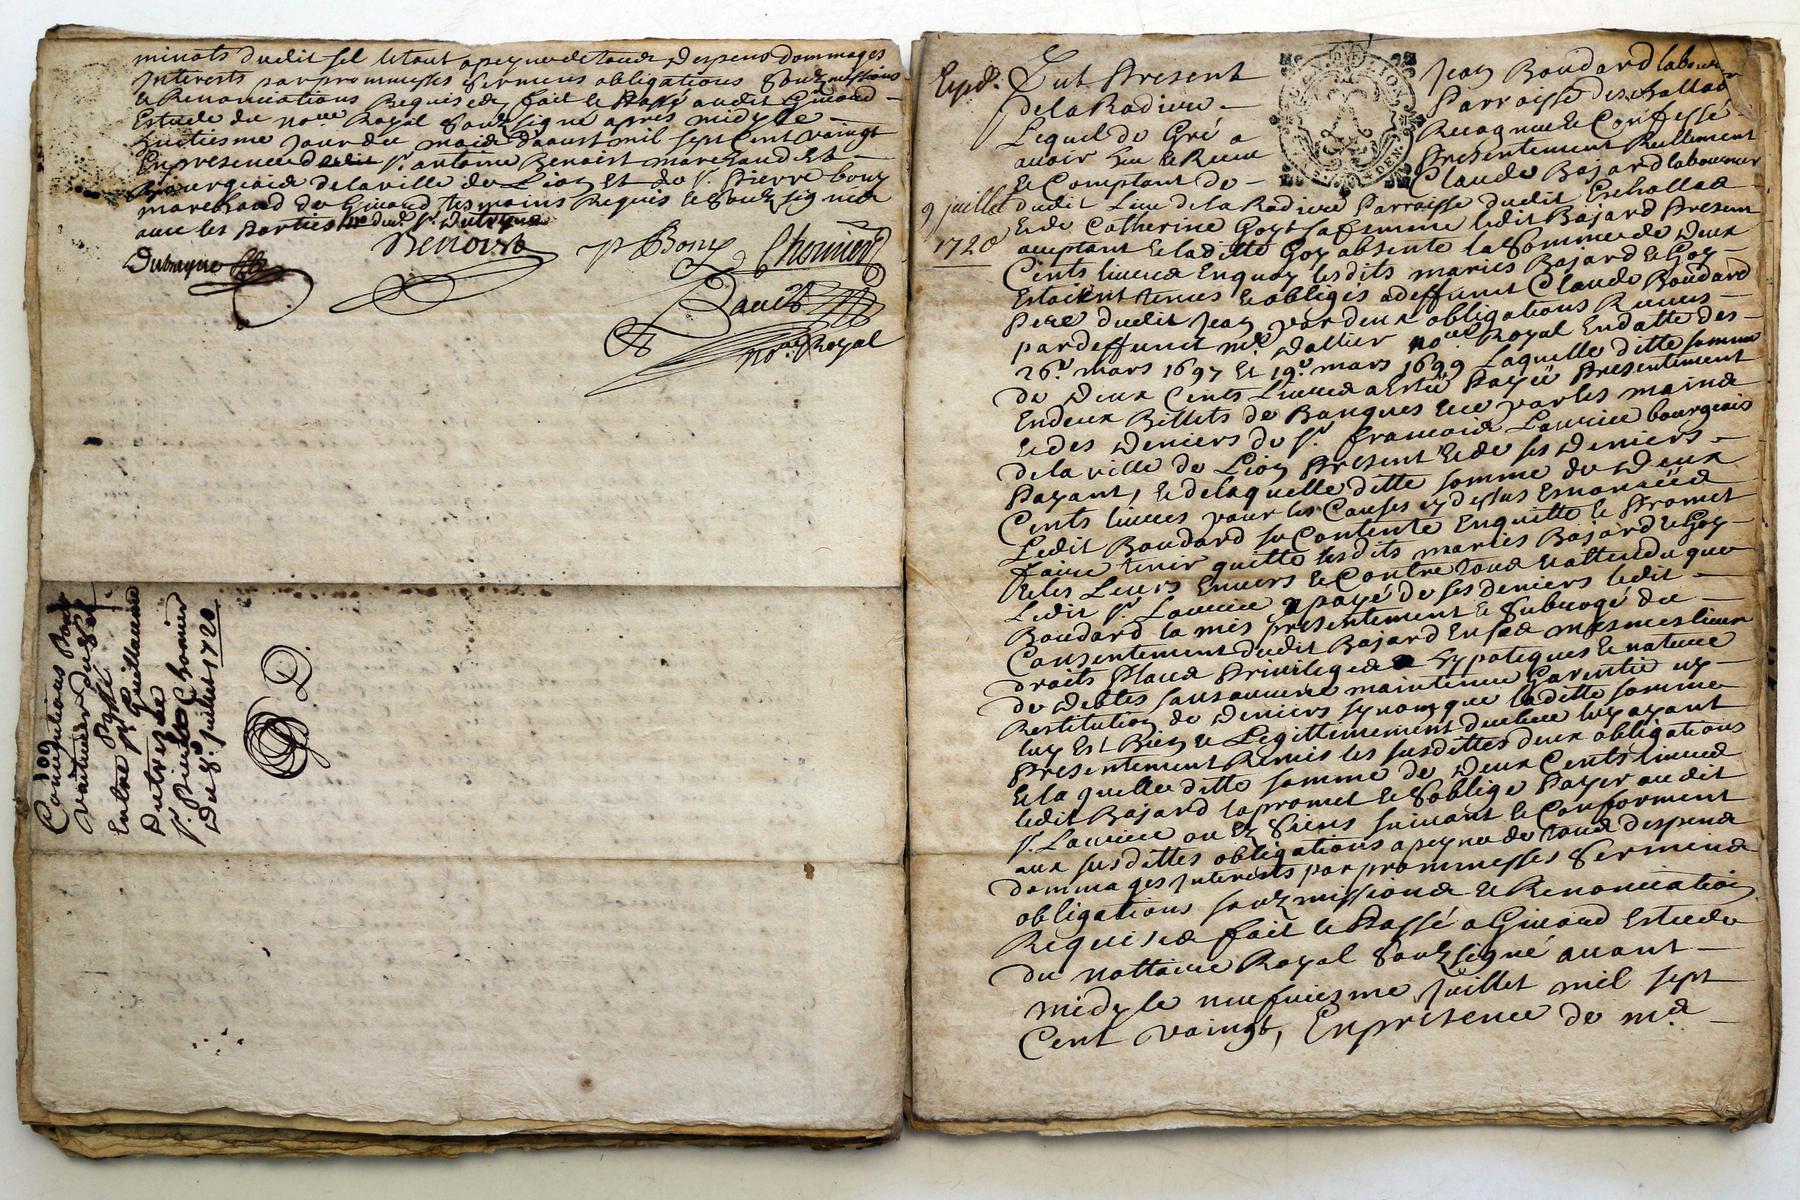 minots dudit sel le tout a peyne de tous despens dommages
Interests par prommesses sermens obligations soubzmissions
& Renonciations Requises fait & Passé audit Givord
Estude du noῦe Royal soubzsigné apres midy le
huitiesme jour du mois d'aoust mil sept Cent vaingt
En presence de sr. antoine Benoist marchand &
Bourgeois de la ville de Lion Et de sr. Pierre bony
marchand de Givord tesmoins Requis & soubzsignés
avec les parties
Dutreyne
Benoist
P Bony
Chornier
noῦe Royal
Conventions Pour
voiturer du sel
Passé
Entre sr. Guillaume
Dutreyne
sr. Pierre Chornier
Du 8e. juillet 1720
Expd.
9 juillet
1720
Fut Present Jean Boudard laboureur
de la Radiere Parroisse des challas
Lequel de Gré a Recognu & Confessé
avoir Eu & Receu Presentement Reellement
& Comptant de Claude Bajard laboureur
dudit Lieu de la Radiere Parroisse dudit Eschallas
& de Catherine Goy sa femme ledit Bajard Present
acceptant & laditte Goy absente la somme de Deux
Cents livres En quoy lesdits mariés Bajard & Goy
Estoient tenus & obligés a deffunct Claude Boudard
Pere dudit Jean par deux obligations Receues
par deffunct me. Dallier noῦe Royal En datte des
26e. mars 1697 Et 19e. mars 1699 Laquelle ditte somme
de Deux Cents Livres a Esté Payée Presentement
En deux Billets de Banques & ce par les mains
& des Deniers de sr. francois Laurice bourgeois
de la ville de Lion Present & de ses Deniers
Payant, & de laquelle ditte somme de Deux
Cents livres pour les Causes cy dessus Enoncées
Ledit Boudard se Contente Enquitte & Promet
faire tenir quitte lesdits mariés Bajard & Goy
& les Leurs Envers & Contre tous & attendu que
Ledit sr. Laurice a payé de ses deniers ledit
Boudard la mis presentement & subrogé du
Consentement dudit Bajard En ses mesmes lieux
droits Place Privileges & hypoteques & nature
de Debtes sans aucune maintenue Garentie ny
Restitution de Deniers synon que laditte somme
luy Est Bien & Legittimement deube luy ayant
Presentement Remis les susdittes deux obligations
& la quelle ditte somme de Deux Cents livres
ledit Bajard la promet & soblige Payer audit
sr. Laurice ou Es siens suivant & Conforment
aux susdittes obligations a peyne de tous despens
dommages Interests par prommesses serments
obligations soubzmissions & Renonciation
Requises fait & Passé a Givord Estude
du nottaire Royal soubzsigné avant
midy le neufviesme Juillet mil sept
Cent vaingt, En presence de me.